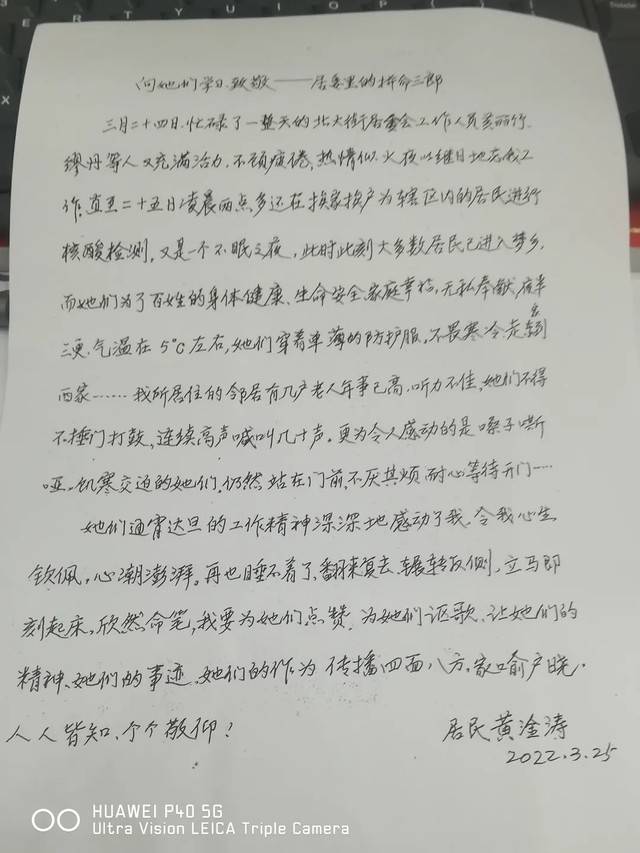 向她们学习、致敬——居委里的拼命三郎
三月二十四日、忙碌了一整天的北大街居委会工作人员姜丽行、
缪丹等人又充满活力、不顾疲倦、热情似火夜以继日地在战工
作、直至二十五日凌晨两点多还在挨家挨户为辖区内的居民进行
核酸检测，又是一个不眠之夜，此时此刻大多数居民已进入梦乡，
而她们为了百姓的身体健康、生命安全家庭幸福，无私奉献，夜半
三更、气温在5℃左右，她们穿着单薄的防护服，不畏寒冷、走东家到
西家……我所居住的邻居有几户老人年事已高、听力不佳，她们不得
不捶门打鼓、连续高声喊叫几十声。更为令人感动的是嗓子嘶
哑、饥寒交迫的她们，仍然站在门前，不厌其烦耐心等待开门……
她们通宵达旦的工作精神深深地感动了我、令我心生
钦佩，心潮澎湃。再也睡不着了、翻来复去、辗转反侧，立马即
刻起床，欣然命笔，我要为她们点赞、为她们讴歌、让她们的
精神、她们的事迹、她们的作为传播四面八方、家喻户晓、
人人皆知、个个敬仰！
居民黄淦涛
2022.3.25
HUAWEI P40 5G
Ultra Vision LEICA Triple Camera